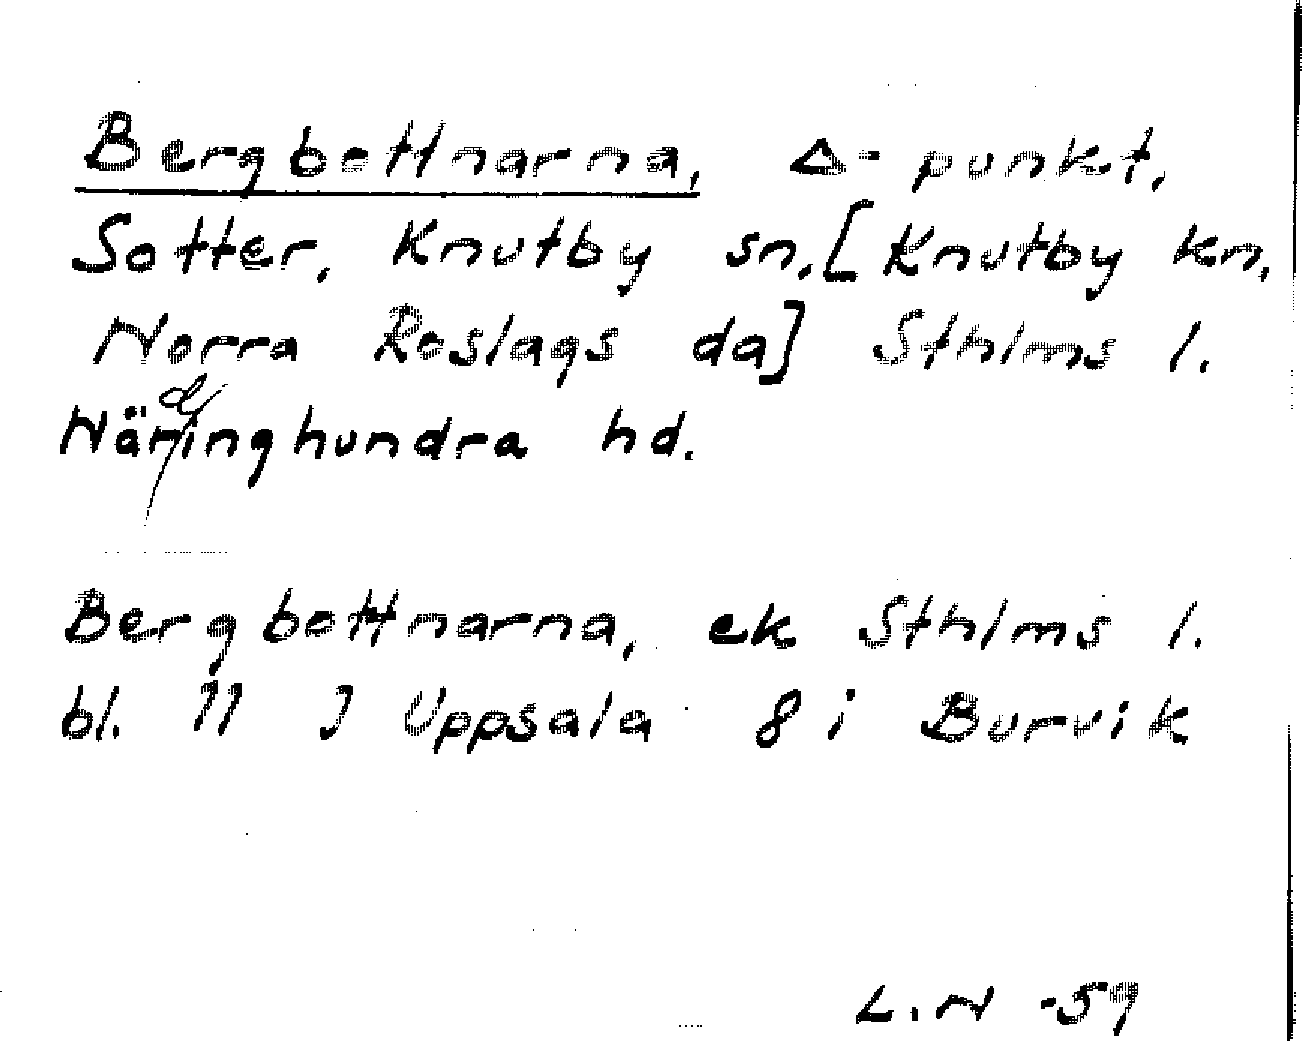 Bergbottnarna, Δ-punkt,
Sotter, Knutby sn. [Knutby kn,
Norra Roslags da] Sthlms l.
Närdinghundra hd.
Bergbottnarna, ek Sthlms l.
bl. 11 J Uppsala 8 i Burvik
L.N -59